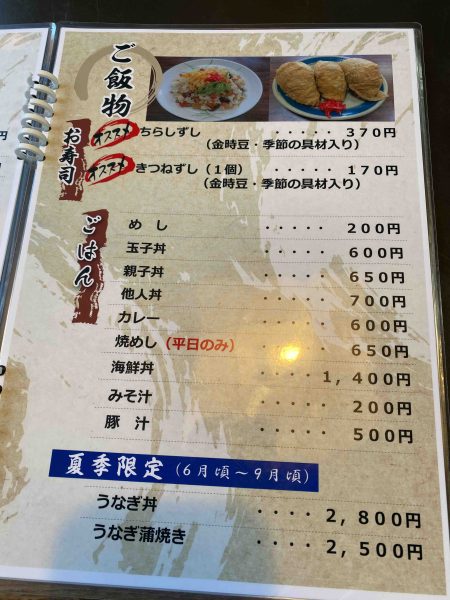 ご飯物
お寿司
オススメ ちらしずし ・・・・・ 370円
(金時豆・季節の具材入り)
オススメ きつねずし(1個) ・・・・・ 170円
(金時豆・季節の具材入り)
ごはん
めし ・・・・・ 200円
玉子丼 ・・・・・ 600円
親子丼 ・・・・・ 650円
他人丼 ・・・・・ 700円
カレー ・・・・・ 600円
焼めし(平日のみ) ・・・・・ 650円
海鮮丼 ・・・・ 1,400円
みそ汁 ・・・・・ 200円
豚汁 ・・・・・ 500円
夏季限定(6月頃～9月頃)
うなぎ丼 ・・・・ 2,800円
うなぎ蒲焼き ・・・・ 2,500円